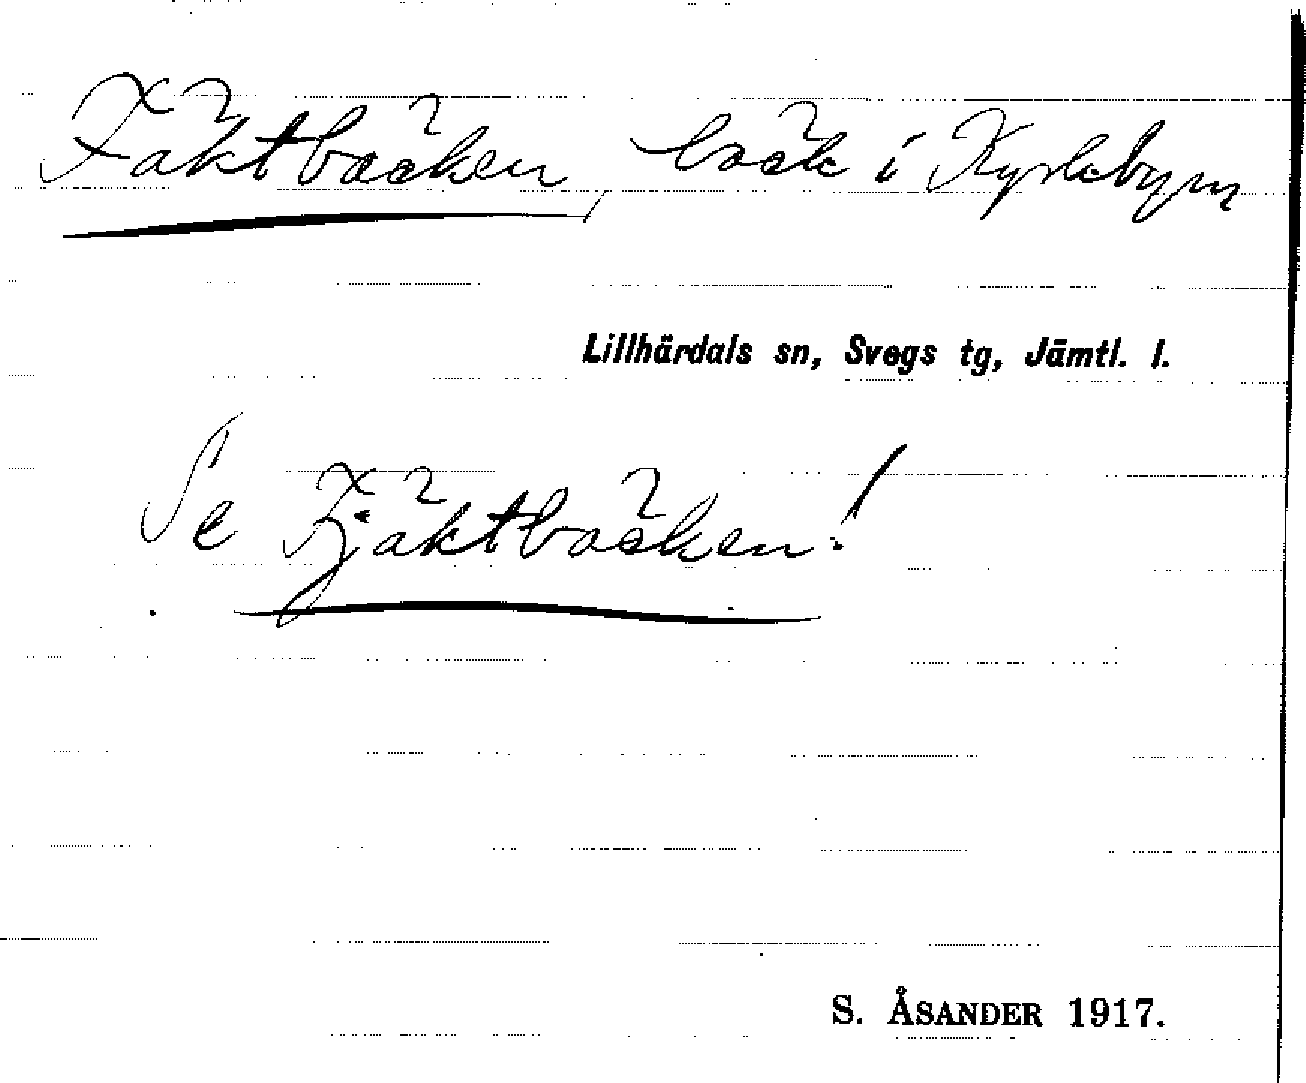 Fäktbäcken, bäck i Kyrkbyn
Lillhärdals sn, Svegs tg, Jämtl. l.
Se Fjäktbäcken!
S. ÅSANDER 1917.